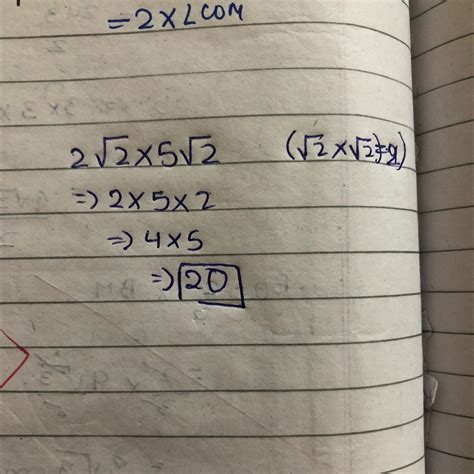 = 2 × LCOM
2√2 × 5√2 (√2 × √2 = 2)
⇒ 2 × 5 × 2
⇒ 4 × 5
⇒ 20